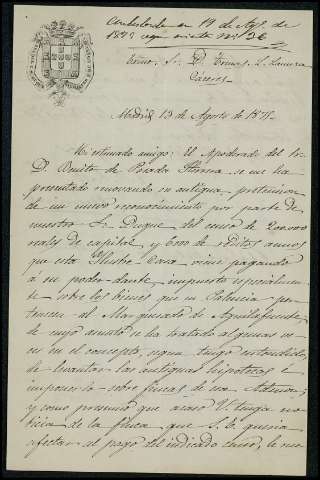 Contestada en 19 de Agto. de
1877
Excmo. Sr. D. Tomas
Cáceres
Madrid 13 de Agosto de 1877
Mi estimado amigo: El Apoderado del Sr.
D. Benito de se me ha
presentado renovando su antigua pretension
de un nuevo reconocimiento por parte de
nuestro Sr. Duque del censo de 200.000
reales de capital, y 6000 de réditos anuos
que esta Illustre Casa viene pagando
á su poder-dante, impuesto especialmen-
te sobre los bienes que en Palencia per-
tenecen al Marquesado de Aguilafuente,
de cuyo asunto se ha tratado algunas ve-
ces en el concepto, segun tengo entendido,
de levantar las antiguas hipotecas é
imponerlo sobre fincas de esa Admon;
y como presumo que acaso V. tenga no-
ticia de la finca que S. E. queria
afectar al pago del indicado censo, le me